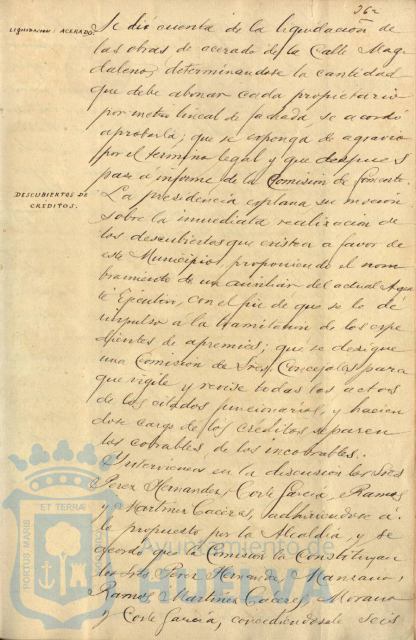 362
LIQUIDACION ACERADO.
Se dió cuenta de la liquidación de
las obras de acerado de la Calle Mag
dalena, determinándose la cantidad
que debe abonar cada propietario
por metro lineal de fachada se acordó
aprobarla; que se exponga de agravio
por el termino legal y que despues
pase a informe de la Comisión de Fomento
DESCUBIERTOS DE
CREDITOS.
La presidencia explana su moción
sobre la inmediata realización de
los descubiertos que existen a favor de
este Municipio proponiendo el nom
bramiento de un auxiliar del actual Agen
te Ejecutivo, con el fin de que se le dé
impulso a la tramitación de los expe
dientes de apremios; que se designe
una Comisión de Sres. Concejales para
que vigile y revise todos los actos
de los citados funcionarios, y hacien
dose cargo de los creditos separen
los cobrables de los incobrables.
Intervienen en la discusión los Sres
Perez Hernandez, Corte Garcia, Ramos
y Martinez Cáceres, adhiriendose á
lo propuesto por la Alcaldía, y se
acordó que la Comisión la Constituyan
los Sres Perez Hernandez, Manzano,
Ramos, Martinez Cáceres, Morano
y Corte Garcia, concediendosele seis
PORTUS MARIS ET TERRAE CUSTODIA
Ayuntamiento de
HUELVA